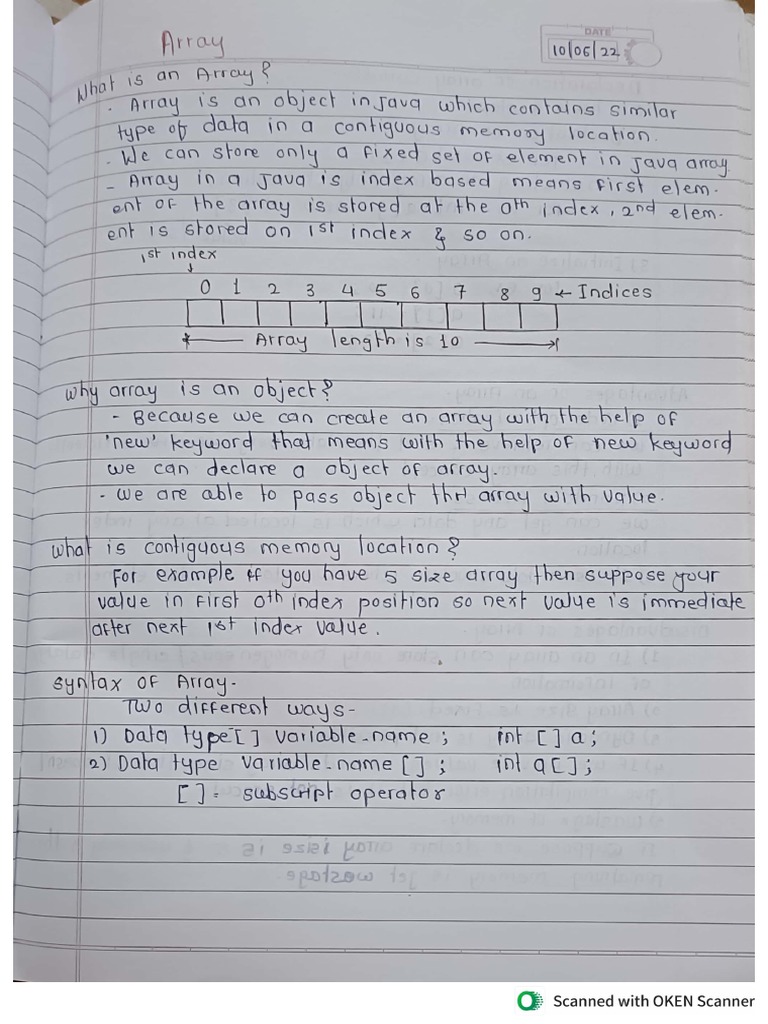 Array
DATE
10/06/22
What is an Array?
- Array is an object in Java which contains similar
type of data in a contiguous memory location.
- We can store only a fixed set of element in java array.
- Array in a java is index based means first elem-
ent of the array is stored at the 0th index, 2nd elem-
ent is stored on 1st index & so on.
1st index
0 1 2 3 4 5 6 7 8 9 ← Indices
Array length is 10
Why array is an object?
- Because we can create an array with the help of
'new' keyword that means with the help of new keyword
we can declare a object of array.
- We are able to pass object thr array with value.
What is contiguous memory location?
For example if you have 5 size array then suppose your
value in first 0th index position so next value is immediate
after next 1st index value.
Syntax of Array-
Two different ways-
1) Data type[] variable-name; int [] a;
2) Data type variable-name []; int a[];
[] = subscript operator
Scanned with OKEN Scanner